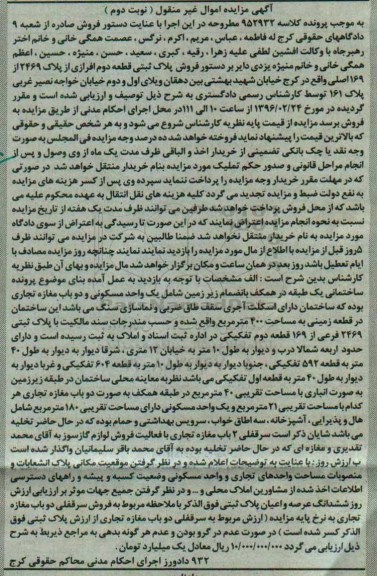 آگهی مزایده اموال غیر منقول ( نوبت دوم )
به موجب پرونده کلاسه ۹۵۲۹۳۲ مطروحه در این اجرا با عنایت دستور فروش صادره از شعبه ۹
دادگاههای حقوقی کرج له فاطمه ، عباس ، مریم ، اکرم ، نرگس ، عصمت همگی خانی و خانم اختر
رهبرجاه با وکالت افشین لطفی علیه زهرا ، رقیه ، کبری ، سعید ، حسن ، منیژه ، حسین ، اعظم
همگی خانی و خانم منیژه یزدی دایر بر دستور فروش پلاک ثبتی قطعه دوم افرازی از پلاک ۲۴۶۹ از
۱۶۹ اصلی واقع در کرج خیابان شهید بهشتی بین دهقان ویلای اول و دوم خیابان خواجه نصیر غربی
پلاک ۱۶۱ توسط کارشناس رسمی دادگستری به شرح ذیل توصیف و ارزیابی شده است و مقرر
گردیده در مورخ ۱۳۹۶/۰۲/۲۴ از ساعت ۱۰ الی ۱۱ در محل اجرای احکام مدنی از طریق مزایده به
فروش برسد مزایده از قیمت پایه نظریه کارشناس شروع می شود و به هر شخص حقیقی و حقوقی
که بالاترین قیمت را پیشنهاد نماید فروخته خواهد شد ده درصد وجه مزایده فی المجلس به صورت
وجه نقد یا چک بانکی تضمینی از خریدار اخذ و الباقی ظرف مدت یک ماه از وی وصول و پس از
انجام مراحل قانونی و صدور حکم تملیک مورد مزایده بنام خریدار منتقل خواهد شد در صورتی
که در مهلت مقرر خریدار وجه مزایده را پرداخت ننماید سپرده وی پس از کسر هزینه های مزایده
به نفع دولت ضبط و مزایده تجدید می گردد کلیه هزینه های نقل انتقال به عهده محکوم علیه می
باشد که از محل فروش پرداخت خواهد شد طرفین می توانند ظرف مدت یک هفته از تاریخ مزایده
نسبت به نحوه انجام مزایده اعتراض نمایند که در این صورت تا رسیدگی به اعتراض از سوی دادگاه
مورد مزایده به نام خریدار منتقل نخواهد شد ضمنا طالبین به شرکت در مزایده می توانند ظرف
۵ روز قبل از مزایده با اطلاع از مال مورد مزایده را بازدید نمایند نمایند چنانچه روز مزایده مصادف با
ایام تعطیل باشد روز بعد در همان ساعت و مکان برگزار خواهد شد مال مزایده و بهای آن طبق نظریه
کارشناس بدین شرح است : الف مشخصات با توجه به بازدید به عمل آمده بنای موضوع پرونده
ساختمانی یک طبقه در همکف بانضمام زیر زمین شامل یک واحد مسکونی و دو باب مغازه تجاری
بوده که ساختمان دارای اسکلت آجری سقف طاق ضربی و نماسازی سنگ می باشد این ساختمان
در قطعه زمینی به مساحت ۴۰۰ مترمربع واقع شده و حسب مندرجات سند مالکیت با پلاک ثبتی
۲۴۶۹ فرعی از ۱۶۹ قطعه دوم تفکیکی در اداره ثبت اسناد و املاک به ثبت رسیده است و دارای
حدود اربعه شمالا درب و دیوار به طول ۱۰ متر به خیابان ۱۲ متری ، شرقا دیوار به دیوار به طول ۴۰
متر به قطعه ۵۹۲ تفکیکی ، جنوبا دیوار به دیوار به طول ۱۰ متر به قطعه ۶۰۴ تفکیکی و غربا دیوار به
دیوار به طول ۴۰ متر به قطعه اول تفکیکی می باشد نظر به معاینه محلی ساختمان در طبقه زیرزمین
به صورت انباری با مساحت تقریبی ۴۰ مترمربع در طبقه همکف به صورت دو باب مغازه تجاری هر
کدام با مساحت تقریبی ۲۱ مترمربع و یک واحد مسکونی دارای مساحت تقریبی ۱۸۰ مترمربع شامل
هال و پذیرایی ، آشپزخانه ، سه اطاق خواب ، سرویس بهداشتی و حمام بوده که در حال حاضر تخلیه
می باشد شایان ذکر است سرقفلی ۲ باب مغازه تجاری با فعالیت فروش لوازم گازسوز به آقای محمد
تقدیری و مغازه ای که در حال حاضر تخلیه بوده به آقای محمد باقر سلیمانیان واگذار شده است
ب ارزش روز : با عنایت به توضیحات اعلام شده و در نظر گرفتن موقعیت مکانی پلاک انشعابات و
منصوبات مساحت واحدهای تجاری و واحد مسکونی وضعیت کسبه و پیشه و راههای دسترسی
اطلاعات اخذ شده از مشاورین املاک محلی و ... و در نظر گرفتن جمیع جهات موثر بر ارزیابی ارزش
روز ششدانگ عرصه و اعیان پلاک ثبتی فوق الذکر با ملاحظه مربوط به فروش سرقفلی دو باب مغازه
تجاری به نرخ پایه مزایده ( ارزش مربوط به سرقفلی دو باب مغازه تجاری از ارزش پلاک ثبتی فوق
الذکر کسر شده است ) در صورت عدم در گرو بودن و عدم هر گونه بدهی به مراجع ذیربط به شرح
ذیل ارزیابی می گردد ۱۰/۰۰۰/۰۰۰/۰۰۰ ریال معادل یک میلیارد تومان .
۹۳۲ دادورز اجرای احکام مدنی محاکم حقوقی کرج